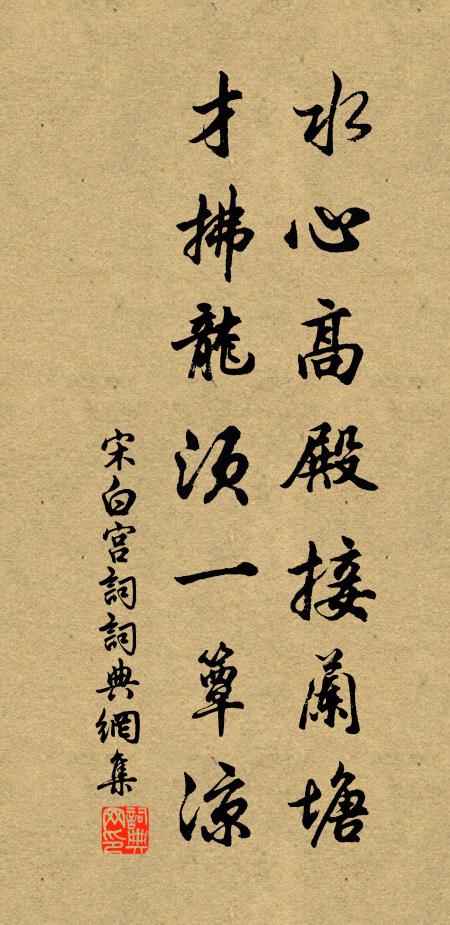 水心高殿接蘭塘
才拂龍須一簟涼
宋白宮詞詞典網集
詞典網印